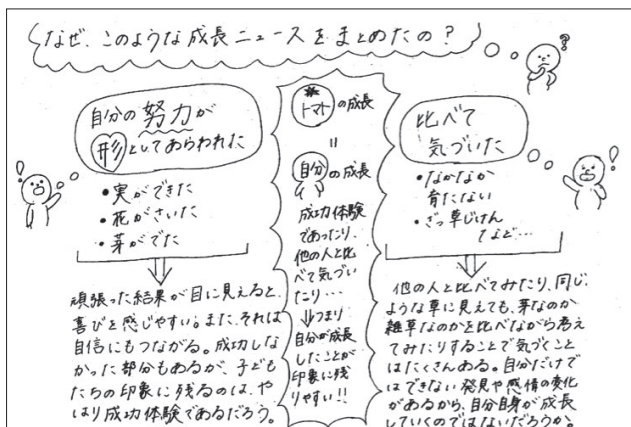 なぜ、このような成長ニュースをまとめたの？
自分の努力が
形としてあらわれた
・実ができた
・花がさいた
・芽がでた
頑張った結果が目に見えると、
喜びを感じやすい。また、それは
自信にもつながる。成功しな
かった部分もあるが、子ども
たちの印象に残るのは、や
はり成功体験であるだろう。
トマトの成長
=
自分の成長
成功体験
であったり、
他の人と比
べて気づい
たり…
⇓つまり
自分が成長
したことが
印象に残
りやすい!!
比べて
気づいた
・なかなか
育たない
・ざっ草じけん
など…
他の人と比べてみたり、同じ
ような草に見えても、芽なのか
雑草なのかと比べながら考え
てみたりすることで気づくこと
はたくさんある。自分だけで
はできない発見や感情の変化
があるから、自分自身が成長
していくのではないだろうか。